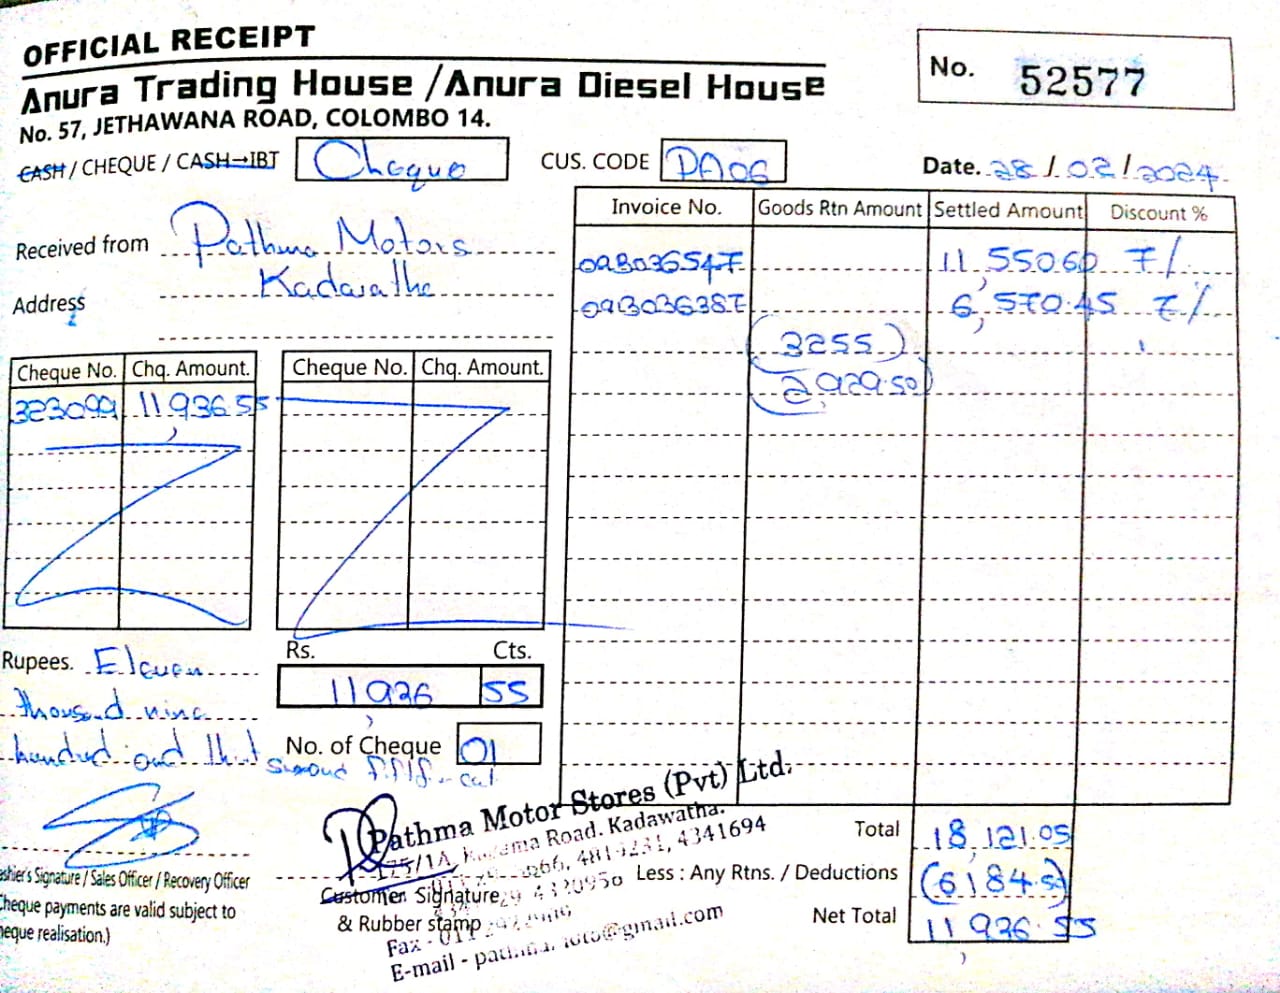 OFFICIAL RECEIPT
Anura Trading House / Anura Diesel House
No. 57, JETHAWANA ROAD, COLOMBO 14.
No. 52577
CASH / CHEQUE / CASH→IBT Cheque
CUS. CODE PA06
Date. 28/02/2024
Received from Pathma Motors
Address Kadawatha
Invoice No. Goods Rtn Amount Settled Amount Discount %
11,550.60 7%
6,570.45 7%
(3255)
(2,929.50)
Cheque No. Chq. Amount. Cheque No. Chq. Amount.
323099 11,936.55
Rs. Cts.
11,936 55
Rupees. Eleven
thousand nine
hundred and
No. of Cheque 01
Pathma Motor Stores (Pvt) Ltd.
Road. Kadawatha.
4341694
Customer Signature
& Rubber stamp
Fax - 011
E-mail - @gmail.com
Cashier's Signature / Sales Officer / Recovery Officer
Cheque payments are valid subject to
cheque realisation.)
Total 18,121.05
Less : Any Rtns. / Deductions (6184.50)
Net Total 11,936.55